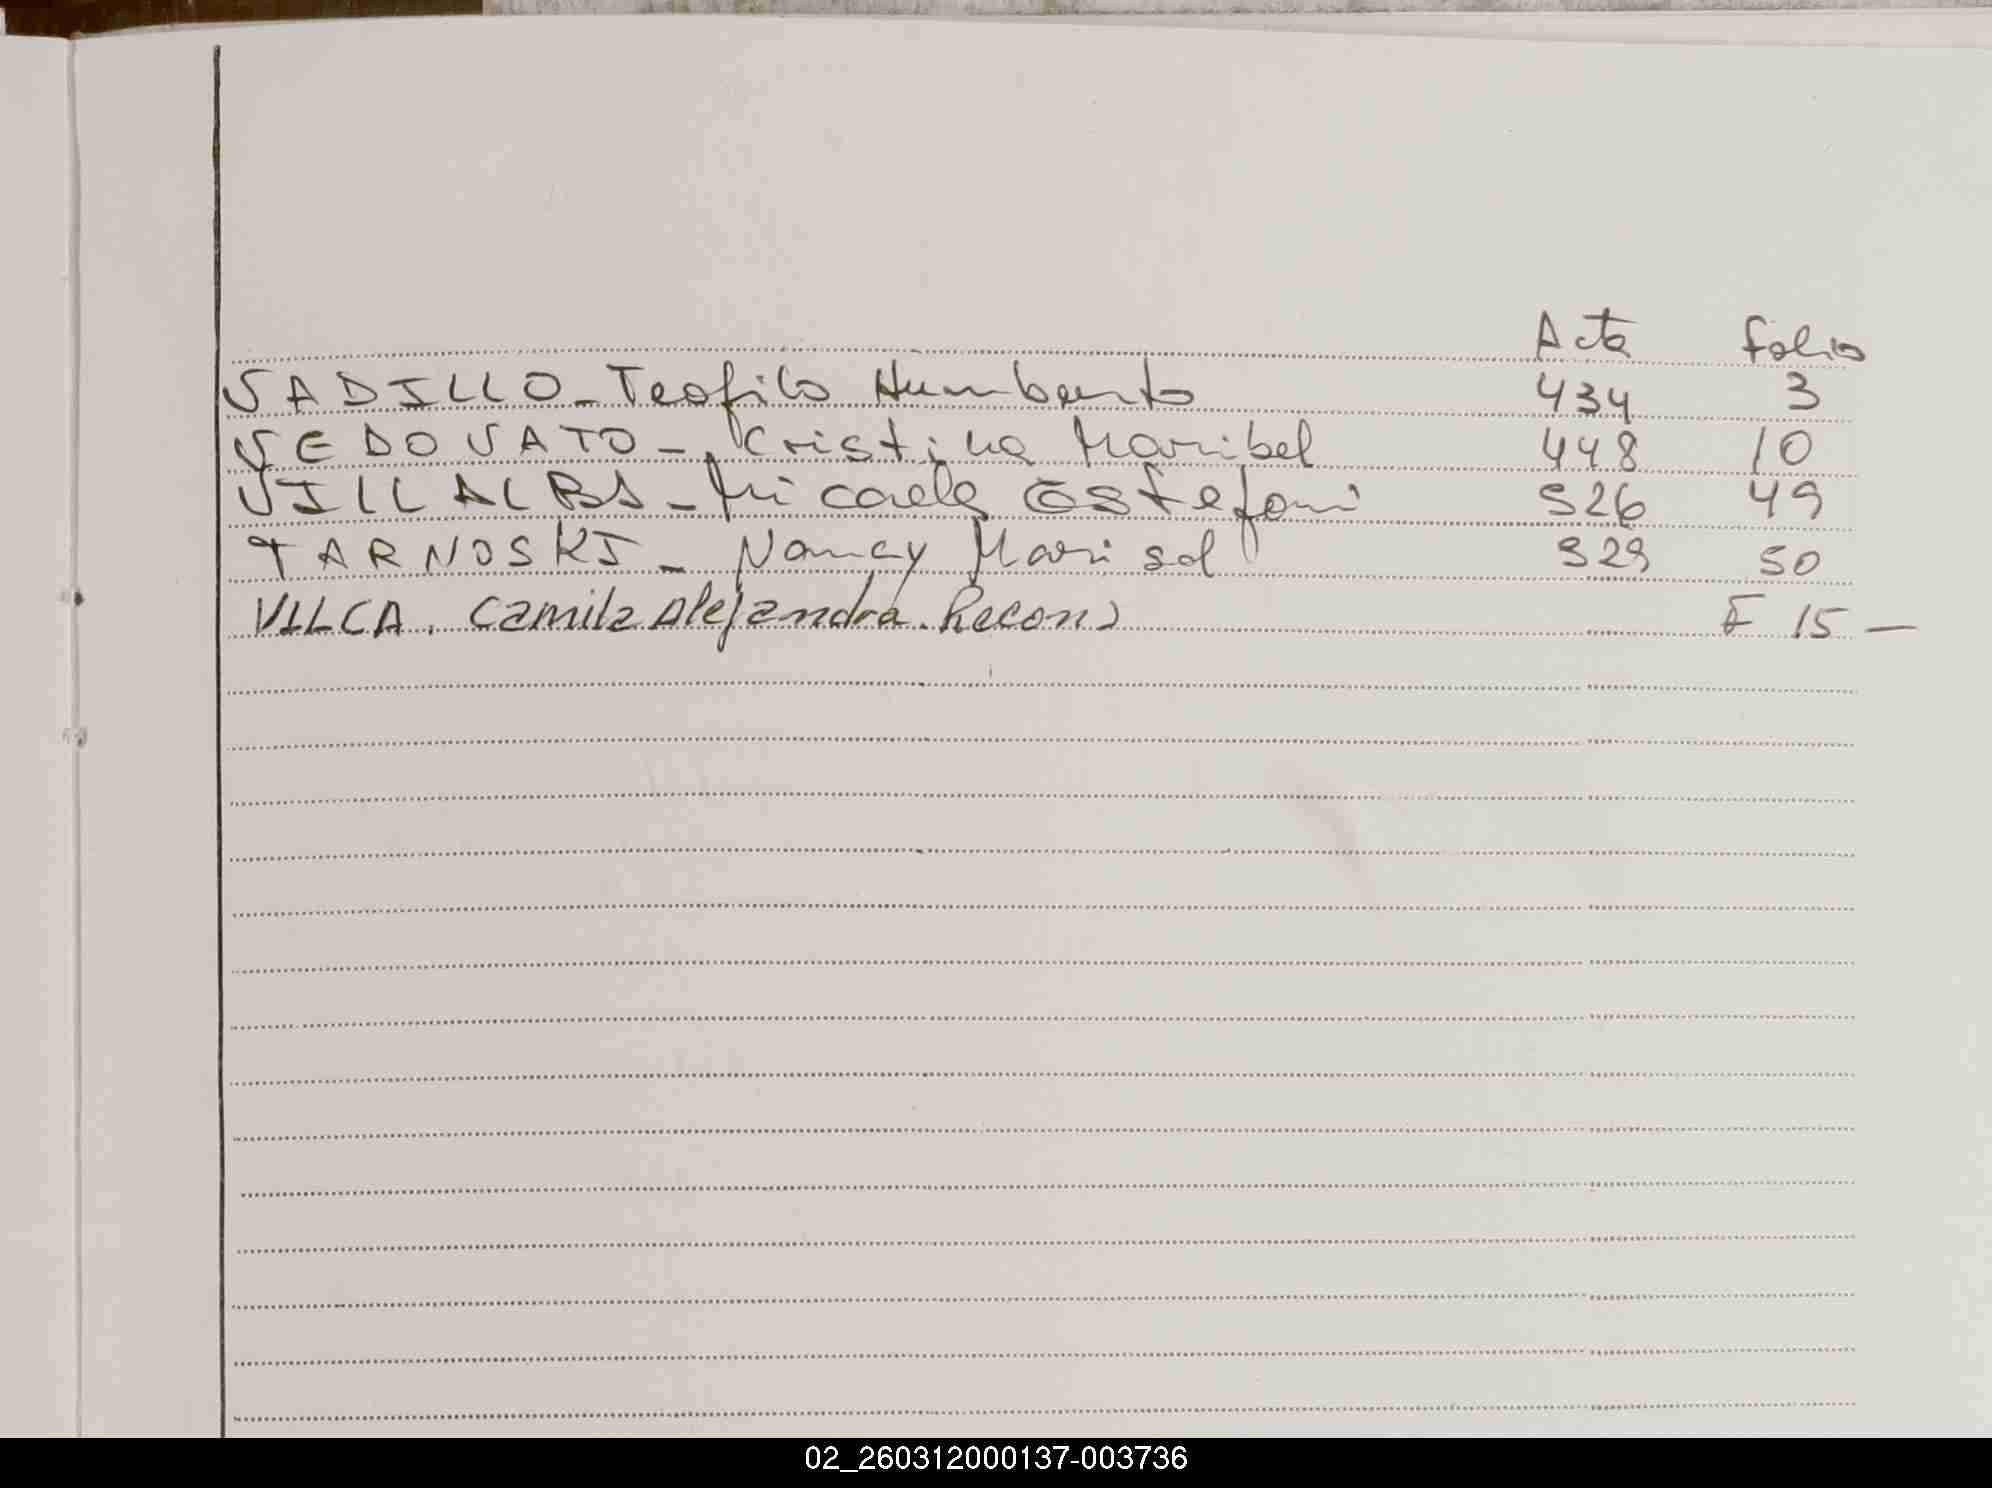 Acta Folio
VADILLO - Teofilo Humberto 434 3
VEDOVATO - Cristina Maribel 448 10
VILLALBA - Micaela Estefani 526 49
TARNOSKI - Nancy Marisol 529 50
VILCA. Camila Alejandra. Recon) F 15 —
02_260312000137-003736